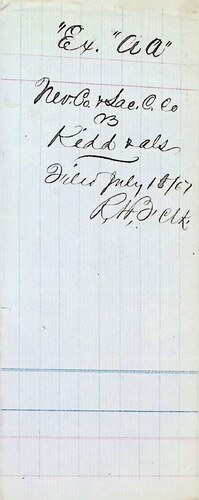 "Ex. "AA"
Nev. Co. & Sac. C. Co
vs
Kidd & als
Filed July 18/67
R. H. F. Clk.